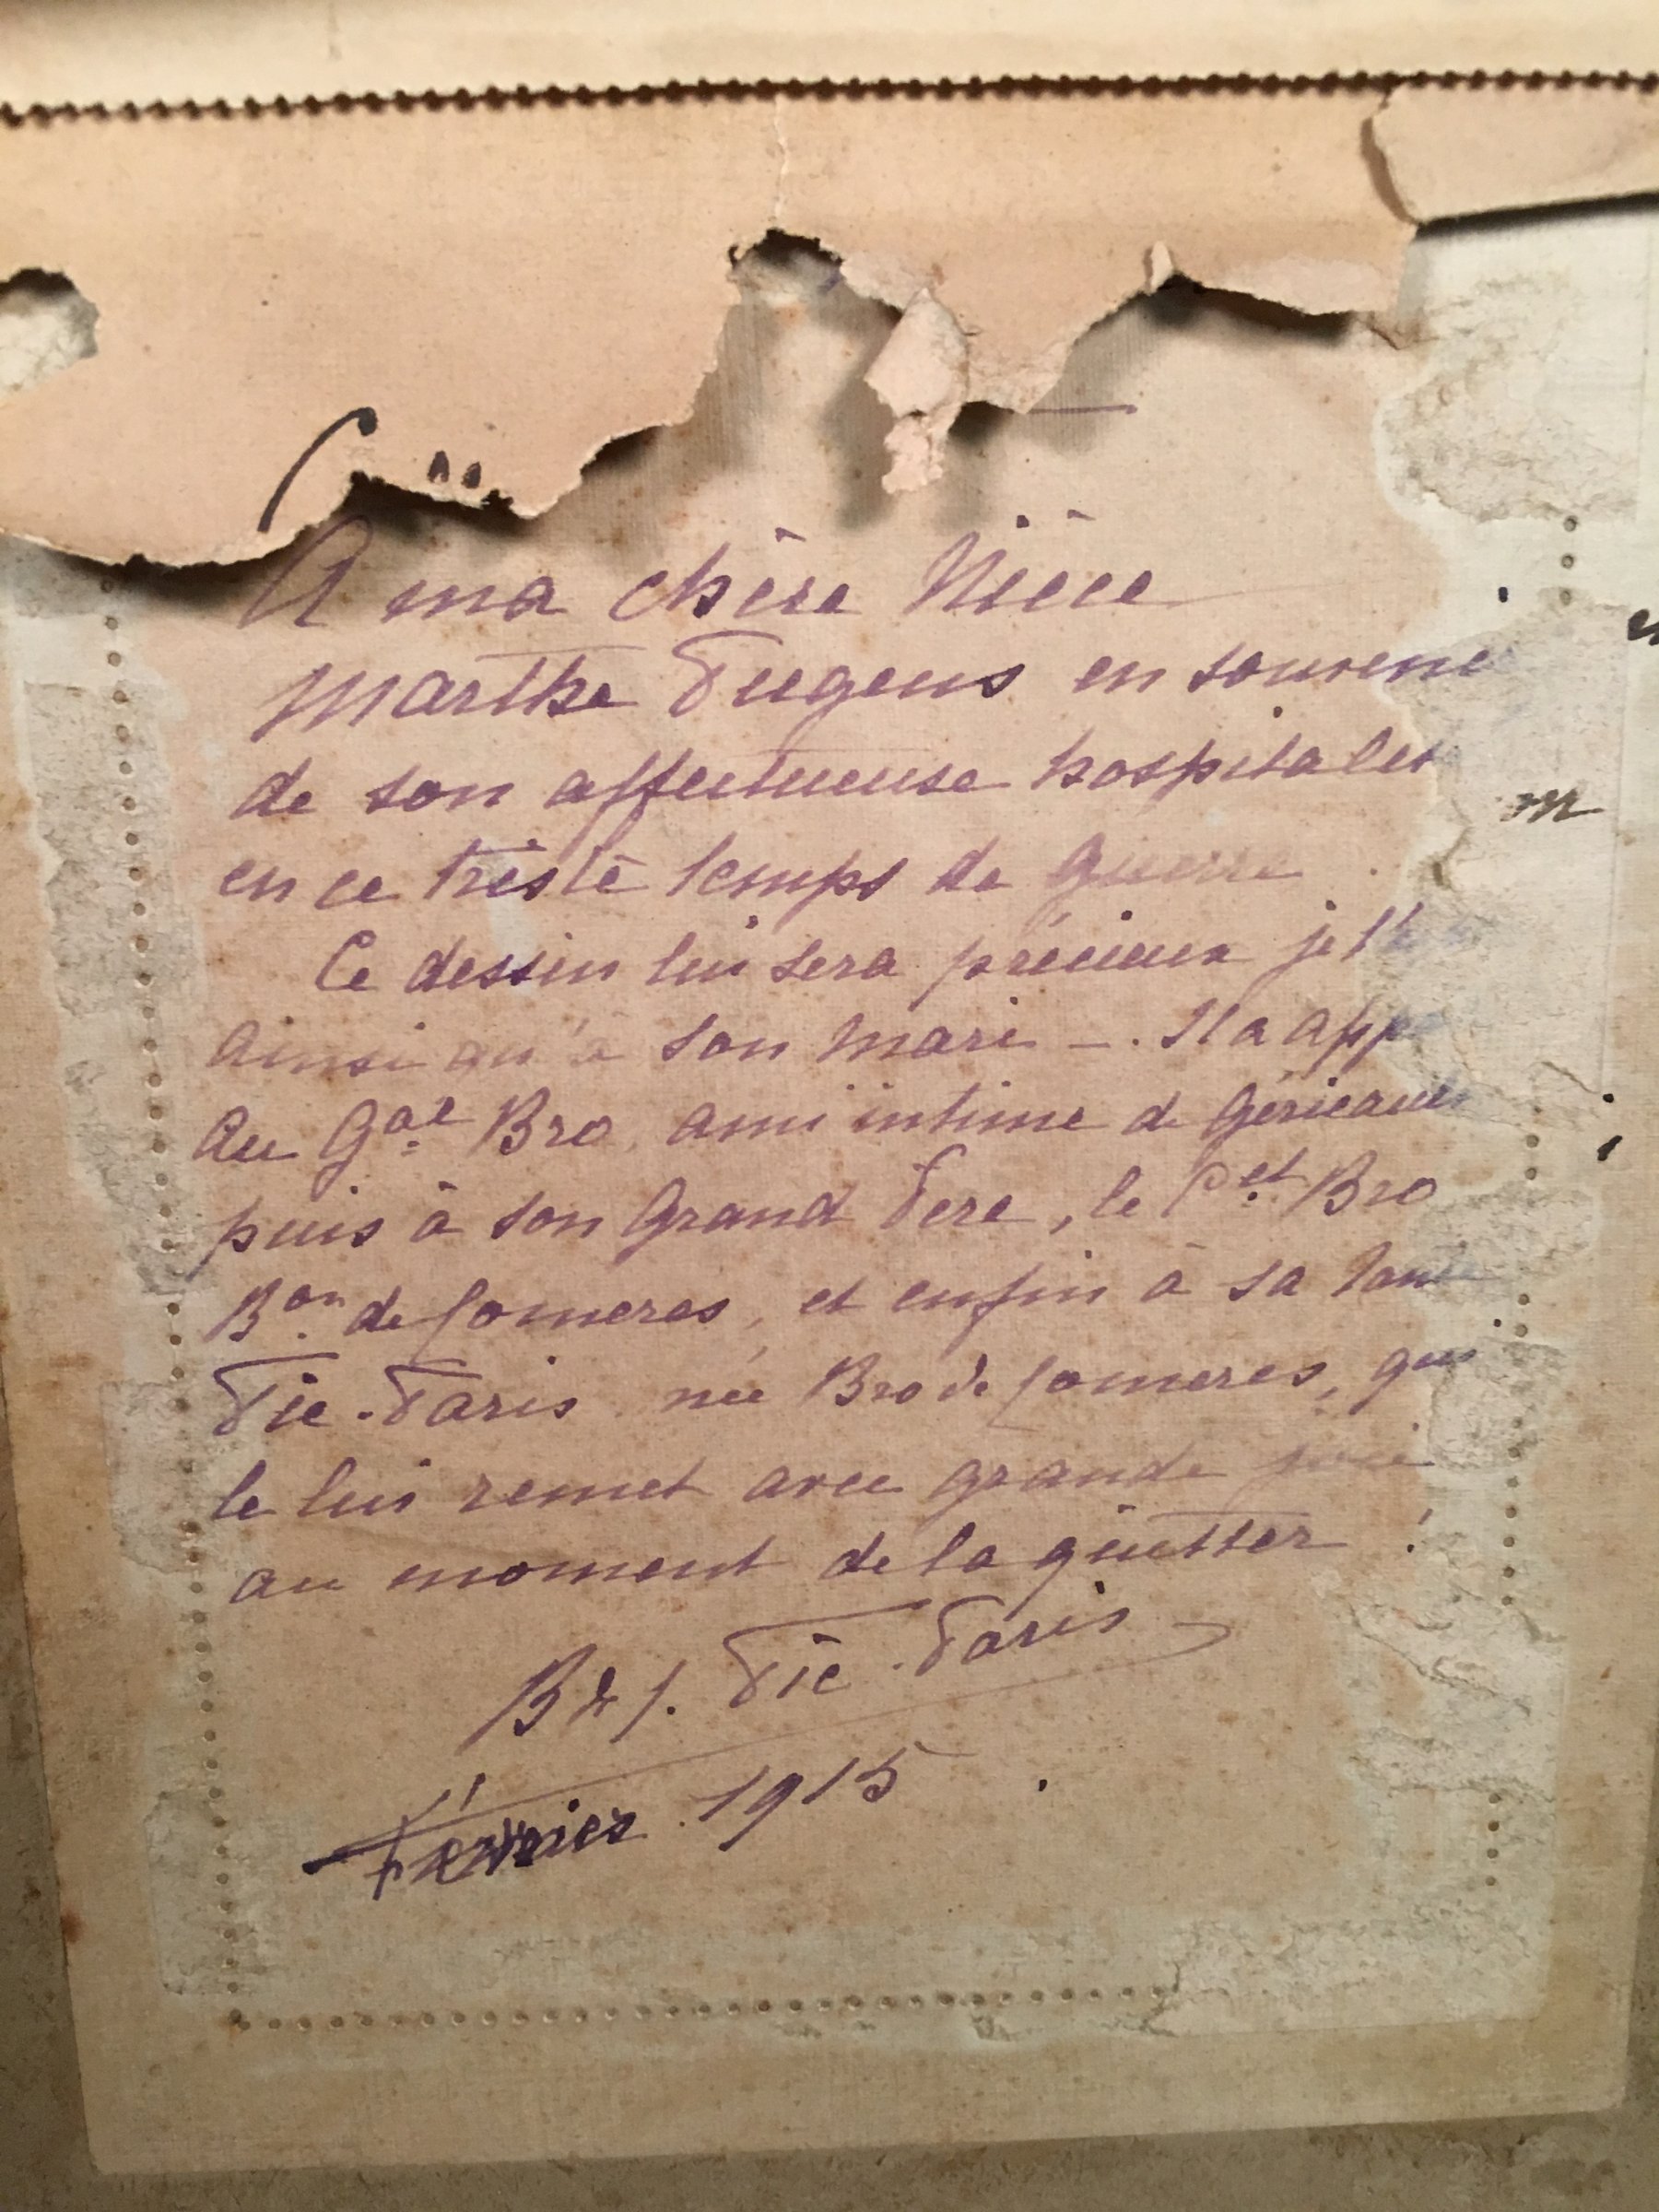 A ma chère Nièce
Marthe Pugens en souveni
de son affectueuse hospitalit
en ce triste temps de guerre
Ce dessin lui sera précieux je l'
ainsi qu'à son mari -. Il a app
au Gal Bro, ami intime de Géricault
puis à son Grand Père, le Cel Bro
Bon de Comeres, et enfin à sa tante
Pie-Paris née Bro de Comeres, qui
le lui remet avec grande joie
au moment de la quitter !
B de C. Pie-Paris
Février 1915